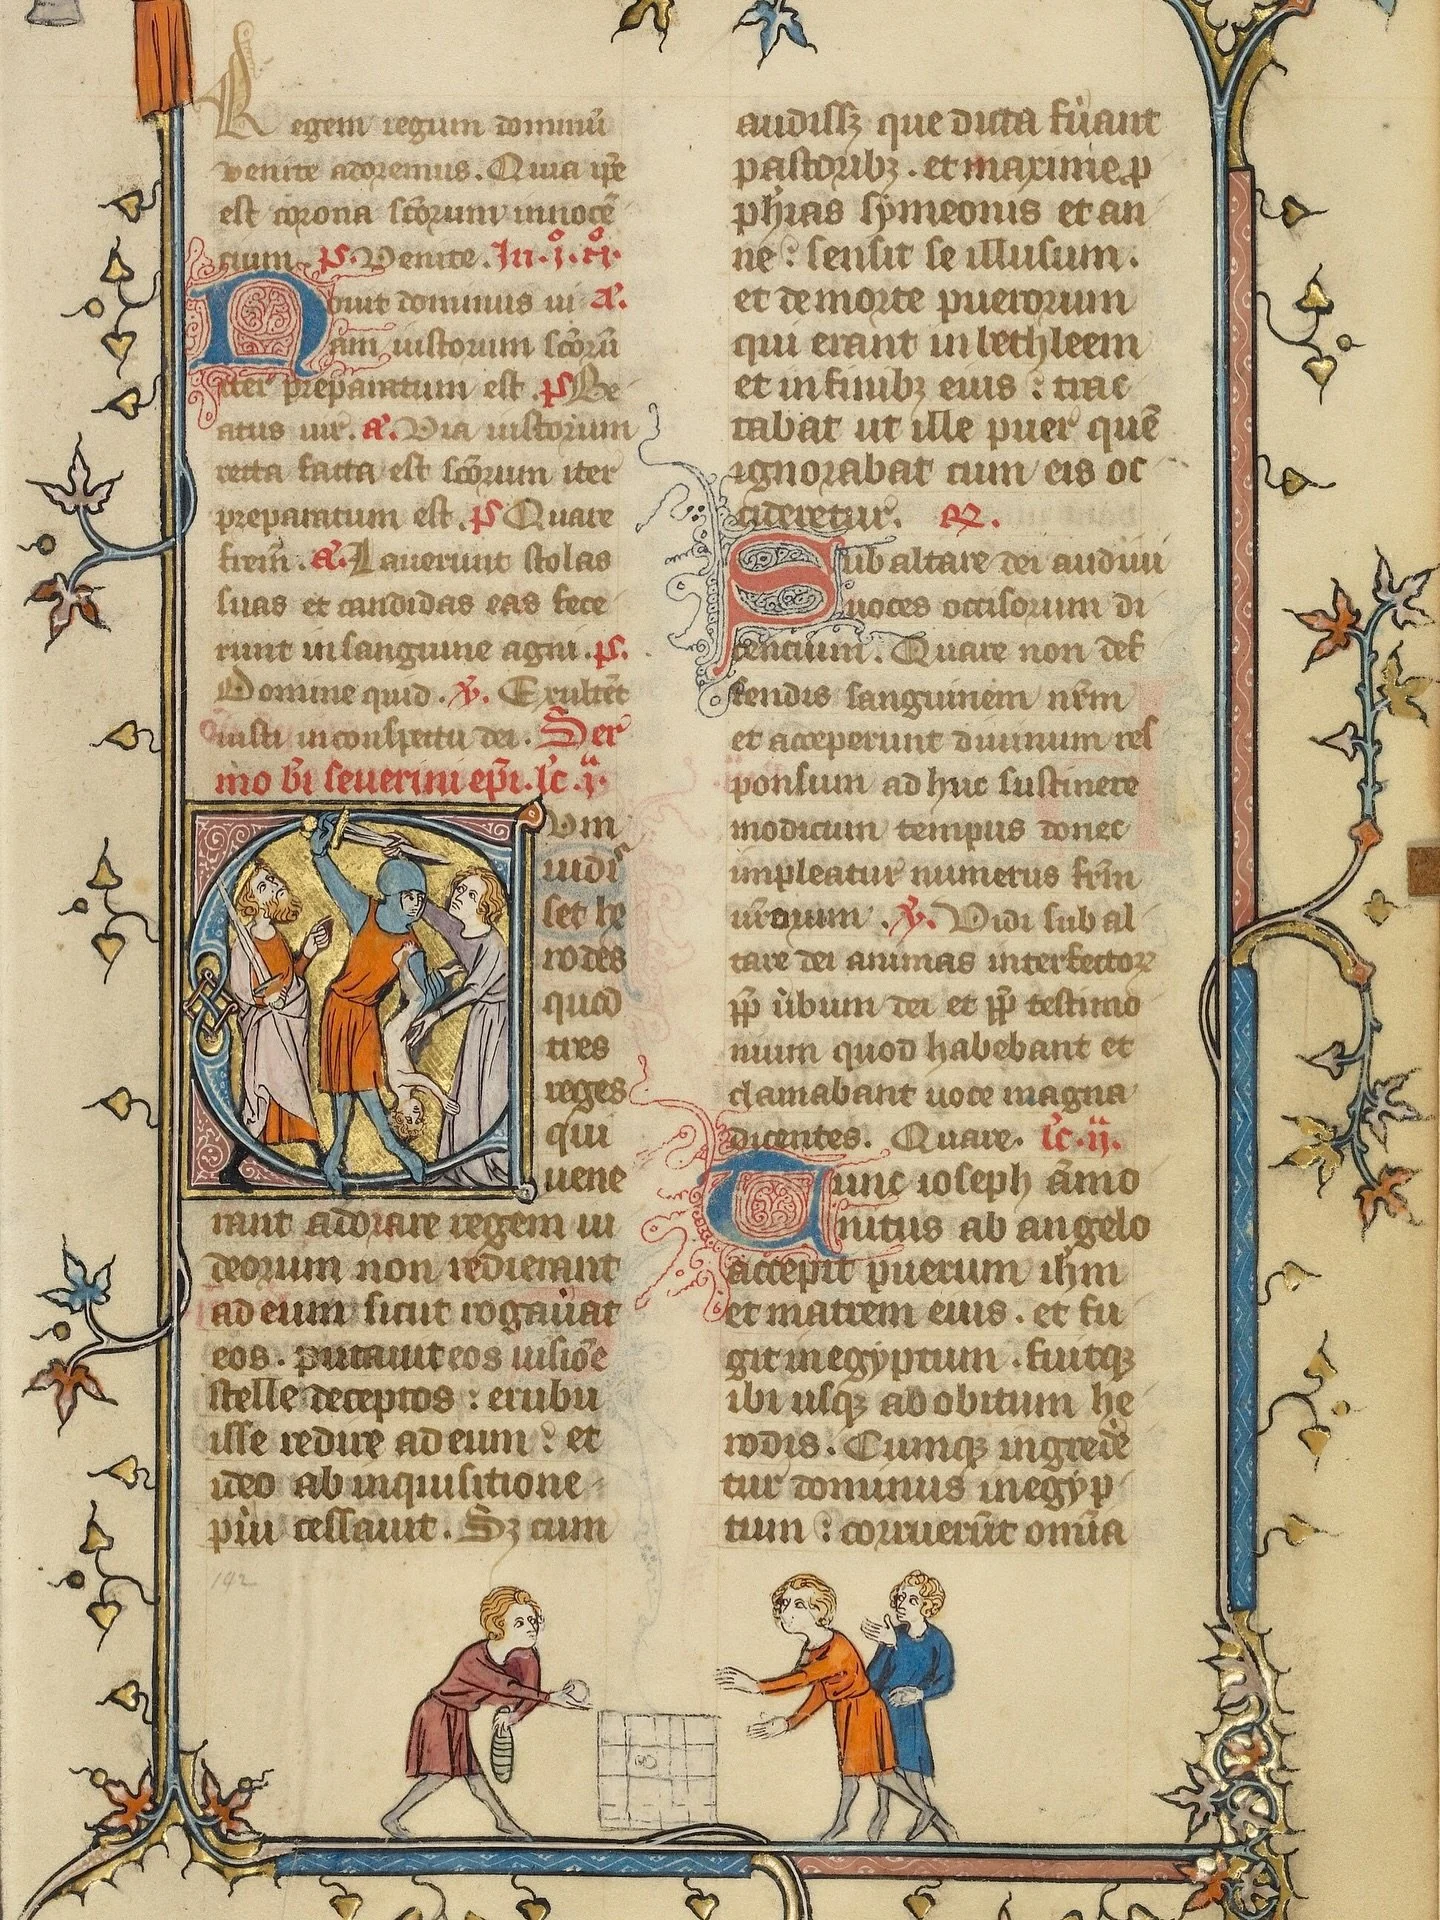 Regem regum dominũ
venite adoremus. Quia ip̃e
est corona sc̃orum innocẽ
cium. p̃s. Venite. In .j. n̊.
Novit dominus vi a.
am iustorum sc̃orũ
iter preparatum est. p̃s Be
atus uir. a. Via iustorum
recta facta est sc̃orum iter
preparatum est. p̃s Quare
frem̃. a. Lauerunt stolas
suas et candidas eas fece
runt in sanguine agni. p̃s.
Domine quid. v̓. Exultẽt
iusti in conspectu dei. Ser
mo bĩ seuerini ep̃i. lc̃. j.
Cum
uidis
set he
rodes
quod
tres
reges
qui
uene
rant adorare regem iu
deorum non redierant
ad eum sicut rogau̾at
eos. putauit eos uisiõe
stelle deceptos : erubu
isse redire ad eum : et
ideo ab inquisitione
pu̾i cessauit. Sꝫ cum
192
audissꝫ que dicta fu̾ant
pastoribꝫ. et maxime p̱
ph̾ias symeonis et an
ne : sensit se illusum.
et de morte puerorum
qui erant in bethleem
et in finibꝫ eius : trac
tabat ut ille puer quẽ
ignorabat cum eis oc
cideretur. R̷.
Sub altare dei audiui
uoces occisorum di
centium. Quare non def
fendis sanguinem nr̃m
et acceperunt diuinum res
ponsum ad huc sustinete
modicum tempus donec
impleatur numerus fr̃m
ur̃orum. v̓. Vidi sub al
tare dei animas interfectoꝝ
pp̃ u̾bum dei et pp̃ testimo
nium quod habebant et
clamabant uoce magna
dicentes. Quare. lc̃. ij.
Tunc ioseph ãmo
nitus ab angelo
accepit puerum ih̃m
et matrem eius. et fu
git in egyptum. fuitqꝫ
ibi usqꝫ ad obitum he
rodis. Cumqꝫ ingrede
tur dominus in egyp
tum : corruerũt om̃ia